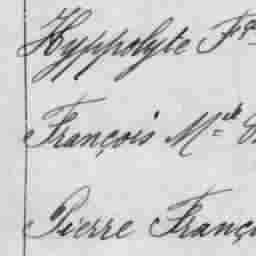 Hyppolyte Fçs
François Mcel
Pierre Franço